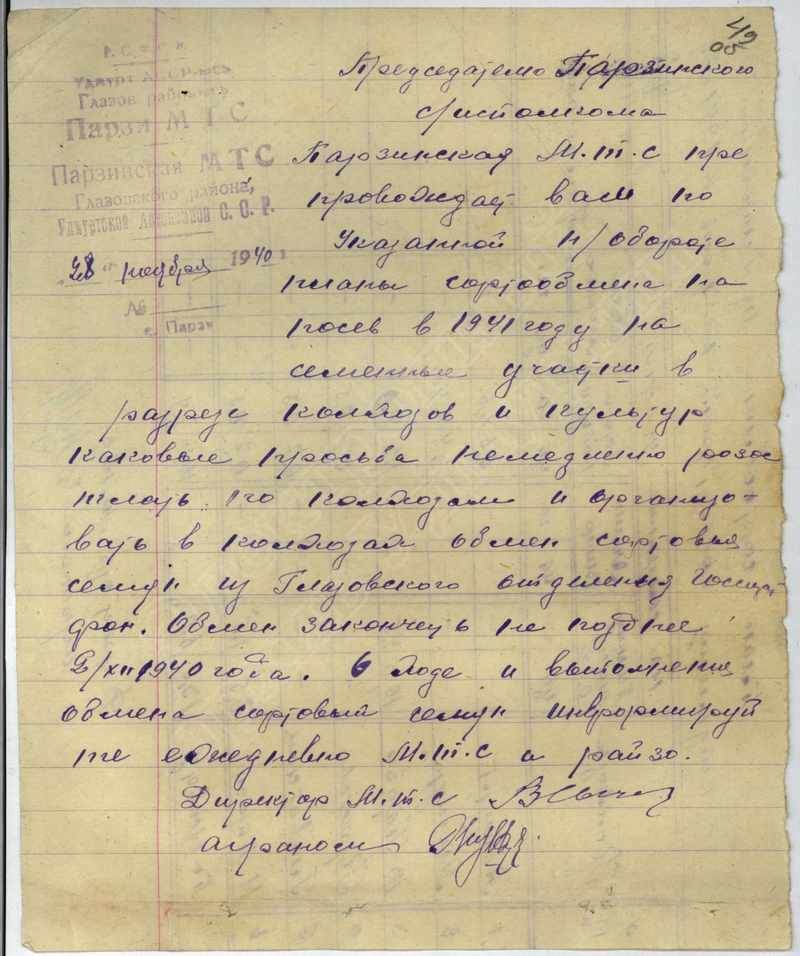 42
об
Р.С.Ф.С.Р.
Удмурт АССР
Глазов район
Парзи МТС
Парзинская МТС
Глазовского района,
Удмуртской Автономной С. С. Р.
"28" ноября 1940 г.
№
с. Парзи
Председателю Парзинского
с/исполкома
Парзинская М.Т.С пре
провождает вам по
указанной н/обороте
планы сортообмена на
посев в 1941 году на
семенные участки в
разрезе колхозов и культур
каковые просьба немедленно розос
лать по колхозам и организо-
вать в колхозах обмен сортовых
семян из Глазовского отделения Госсорт
фон. Обмен закончеть не позднее
5/XII 1940 года. О ходе и выполнении
обмена сортовых семян информируй
те ежедневно М.Т.С и райзо.
Директор М.Т.С
агроном